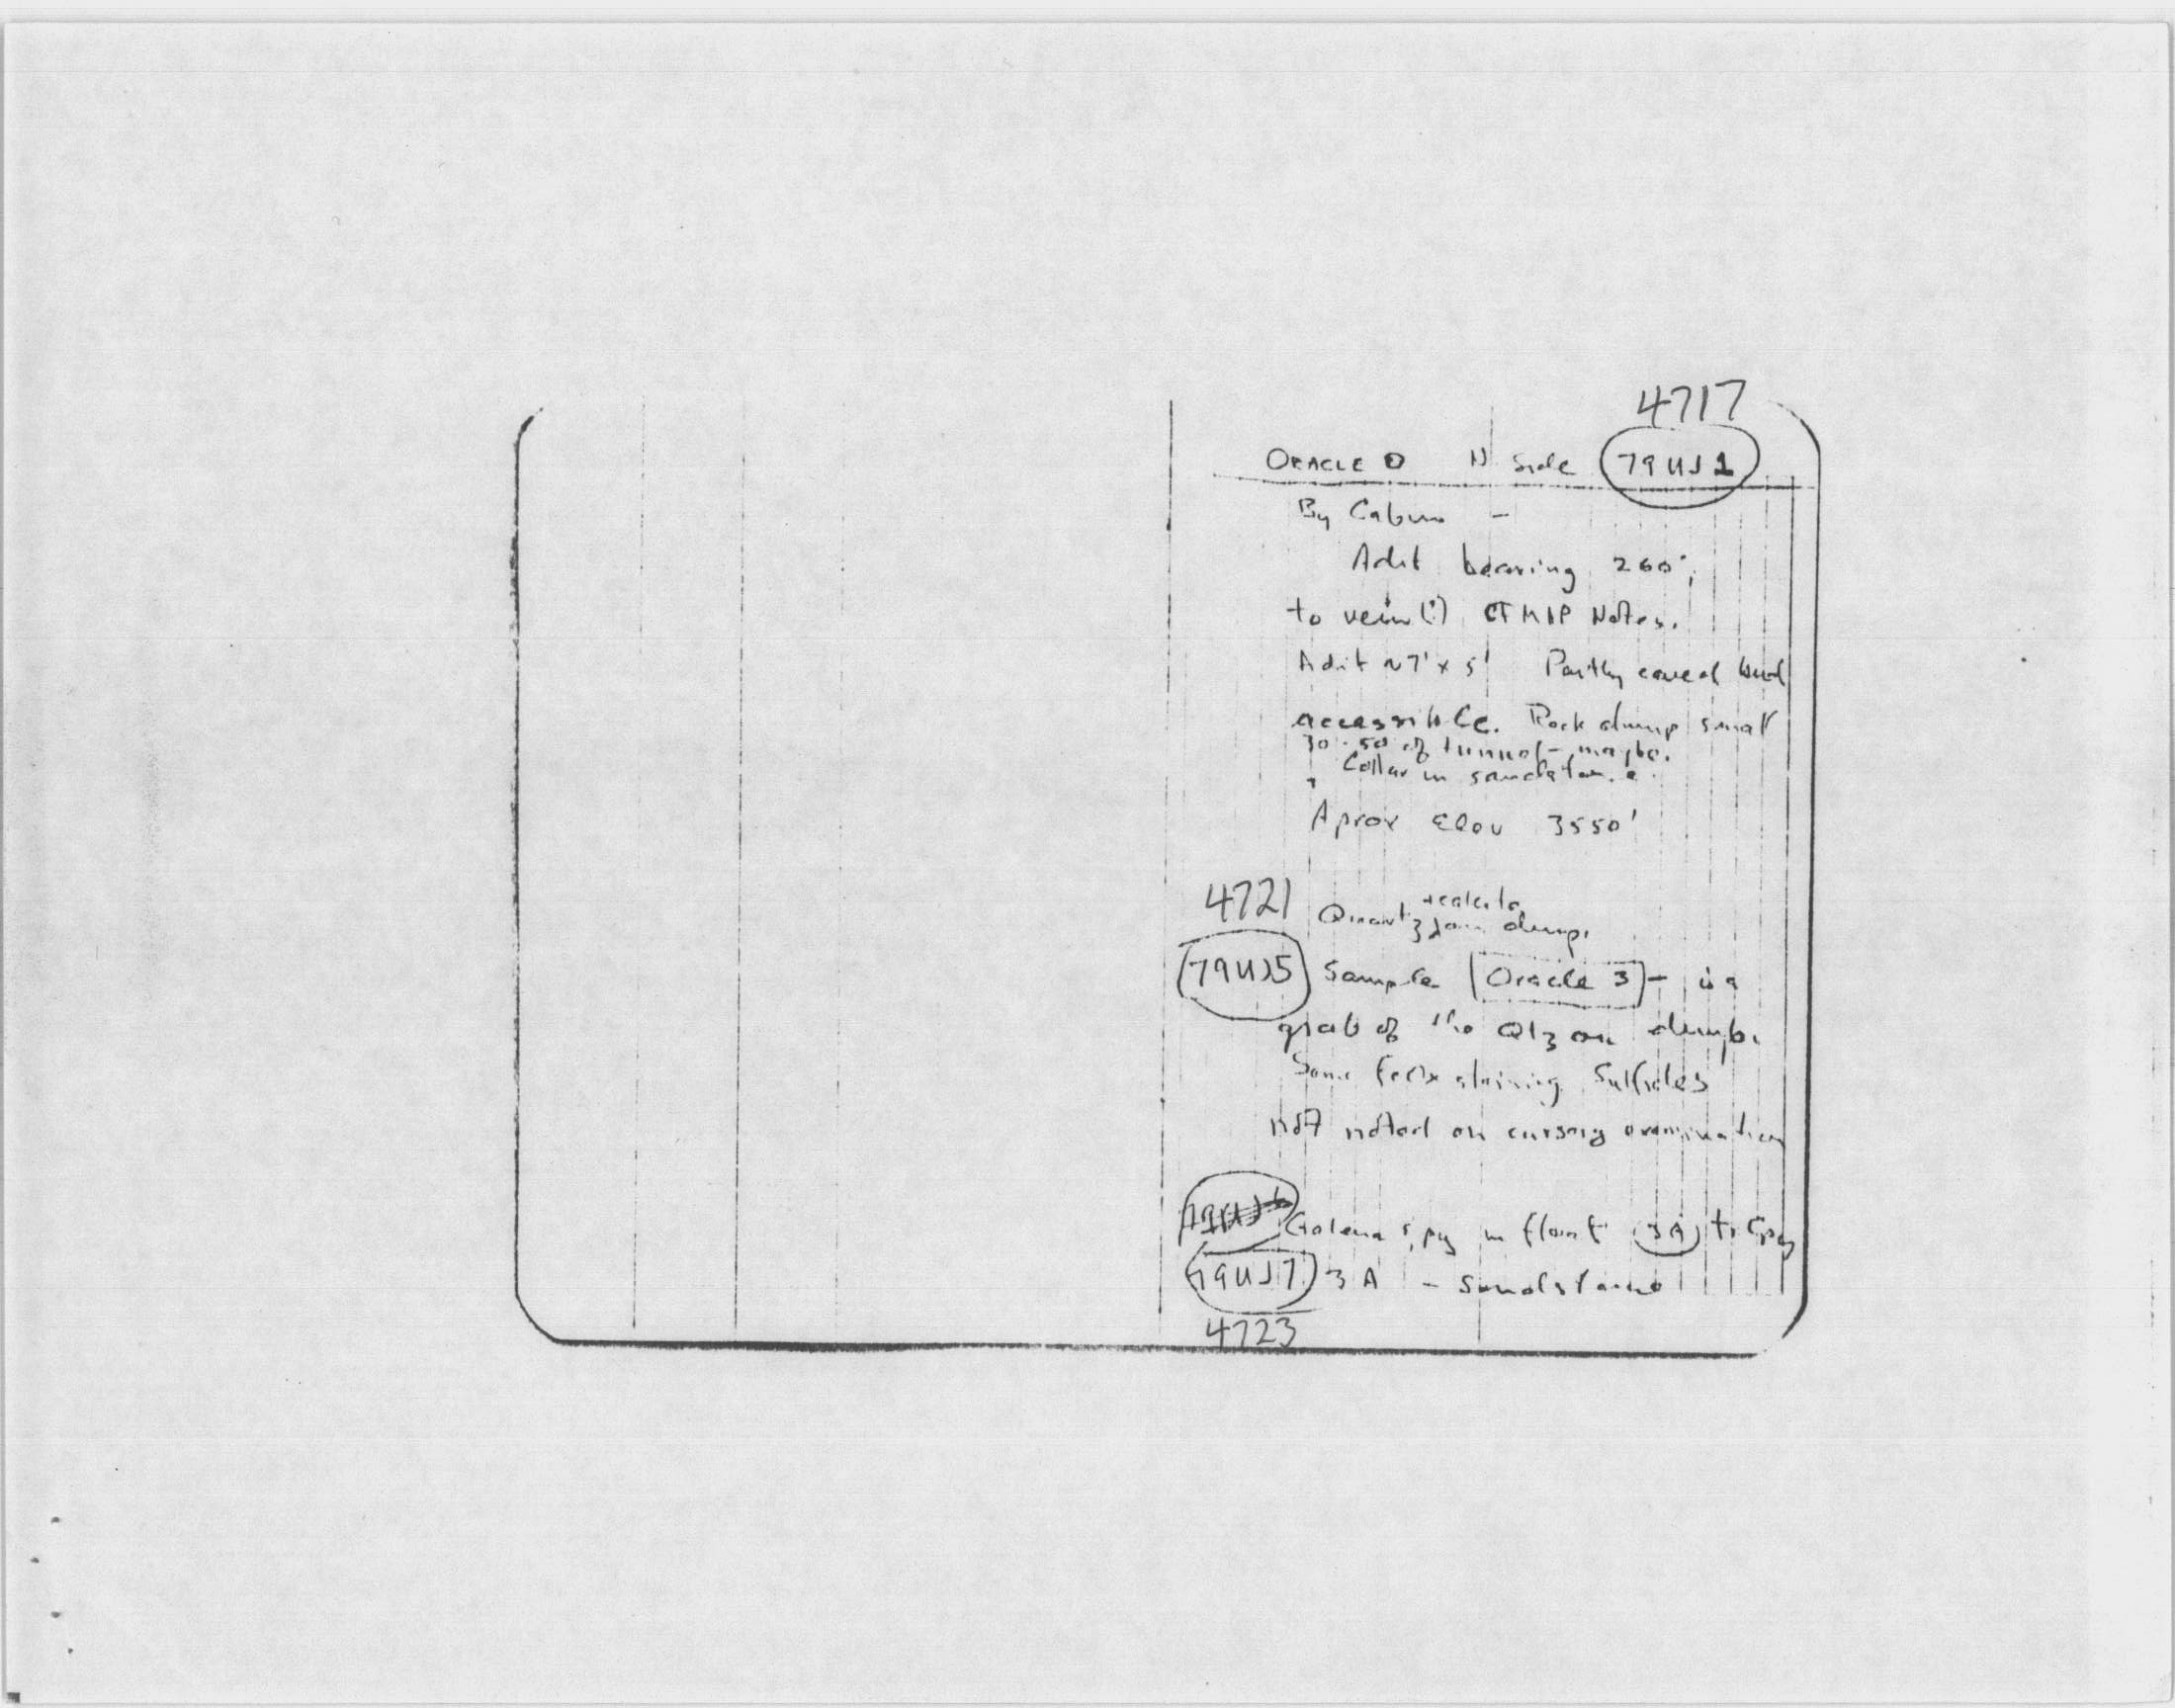 4717
ORACLE N Side 79UJ1
By Cabin -
Adit bearing 260°;
to vein (?) CF MIP Notes.
Adit ~7' x 5' Partly caved but
accessible. Rock dump small
30-50 of tunnel - maybe.
Collar in sandstone.
Aprox Elev 3550'
4721
+ calcite
Quartz on dump.
79UJ5 Sample Oracle 3 - is a
grab of the Qtz on dump.
Some FeOx staining Sulfides
not noted on cursory examination
Galena & py in float 3A tr Cpy
79UJ7 3A - Sandstone
4723